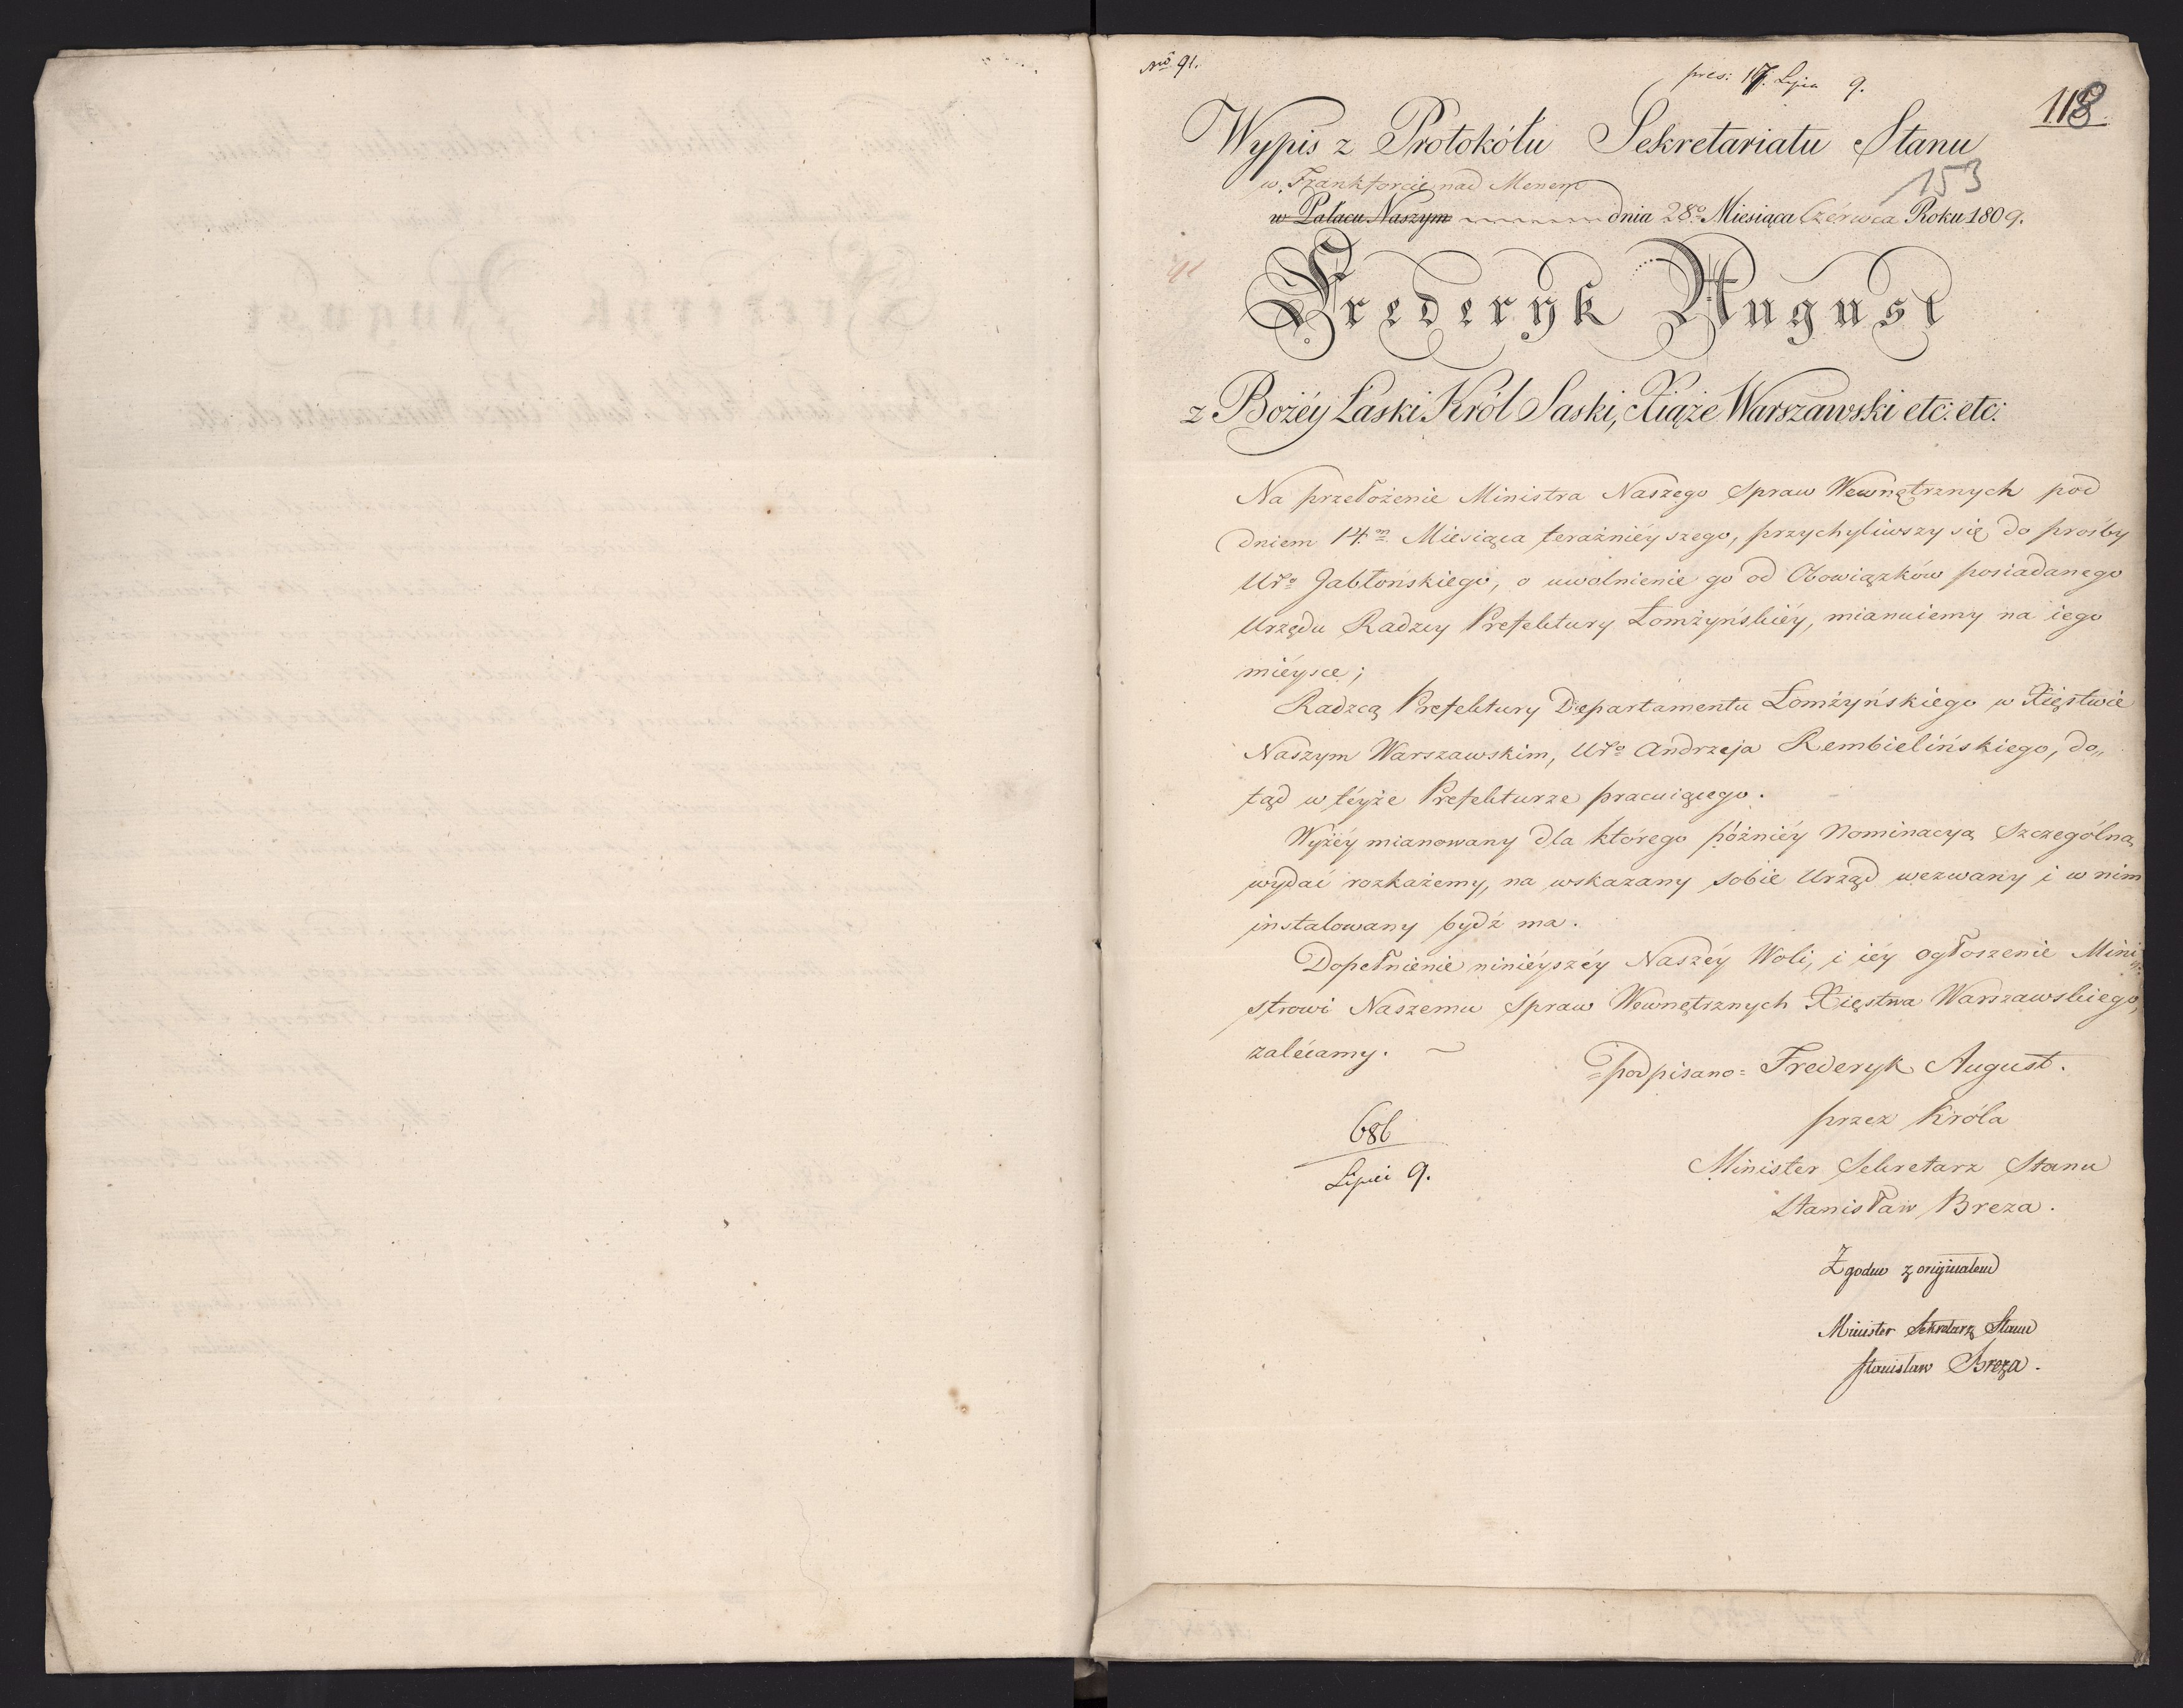 Nro 91.
pres: 17. Lipca 9.
118.
Wypis z Protokółu Sekretariatu Stanu
153
w Frankforcie nad Menem
w Pałacu Naszym dnia 28o Miesiąca Czérwca Roku 1809.
91
Frederyk August
z Bożéy Łaski Król Saski, Xiąże Warszawski etc: etc:
Na przełożenie Ministra Naszego Spraw Wewnętrznych pod
dniem 14.m Miesiąca teraźniéyszego, przychyliwszy się do prośby
Uro Jabłońskiego, o uwolnienie go od Obowiązków posiadanego
Urzędu Radzcy Prefektury Łomżyńskiéy, mianuiemy na iego
miéysce;
Radzcą Prefektury Departamentu Łomżyńskiego w Xięstwie
Naszym Warszawskim, Uro Andrzeja Rembielińskiego, do„
tąd w téyże Prefekturze pracuiącego.
Wyżéy mianowany dla którego późniéy Nominacyą Szczególną
wydać rozkażemy, na wskazany sobie Urząd wezwany i w nim
instalowany bydź ma.
Dopełnienie niniéyszéy Naszéy Woli, i iéy ogłoszenie Mini„
strowi Naszemu Spraw Wewnętrznych Xięstwa Warszawskiego,
zalécamy.
=podpisano= Frederyk August.
przez Króla
686
Lipci 9.
Minister Sekretarz Stanu
Stanisław Breza.
Zgodno z originałem
Minister Sekretarz Stanu
Stanisław Breza.